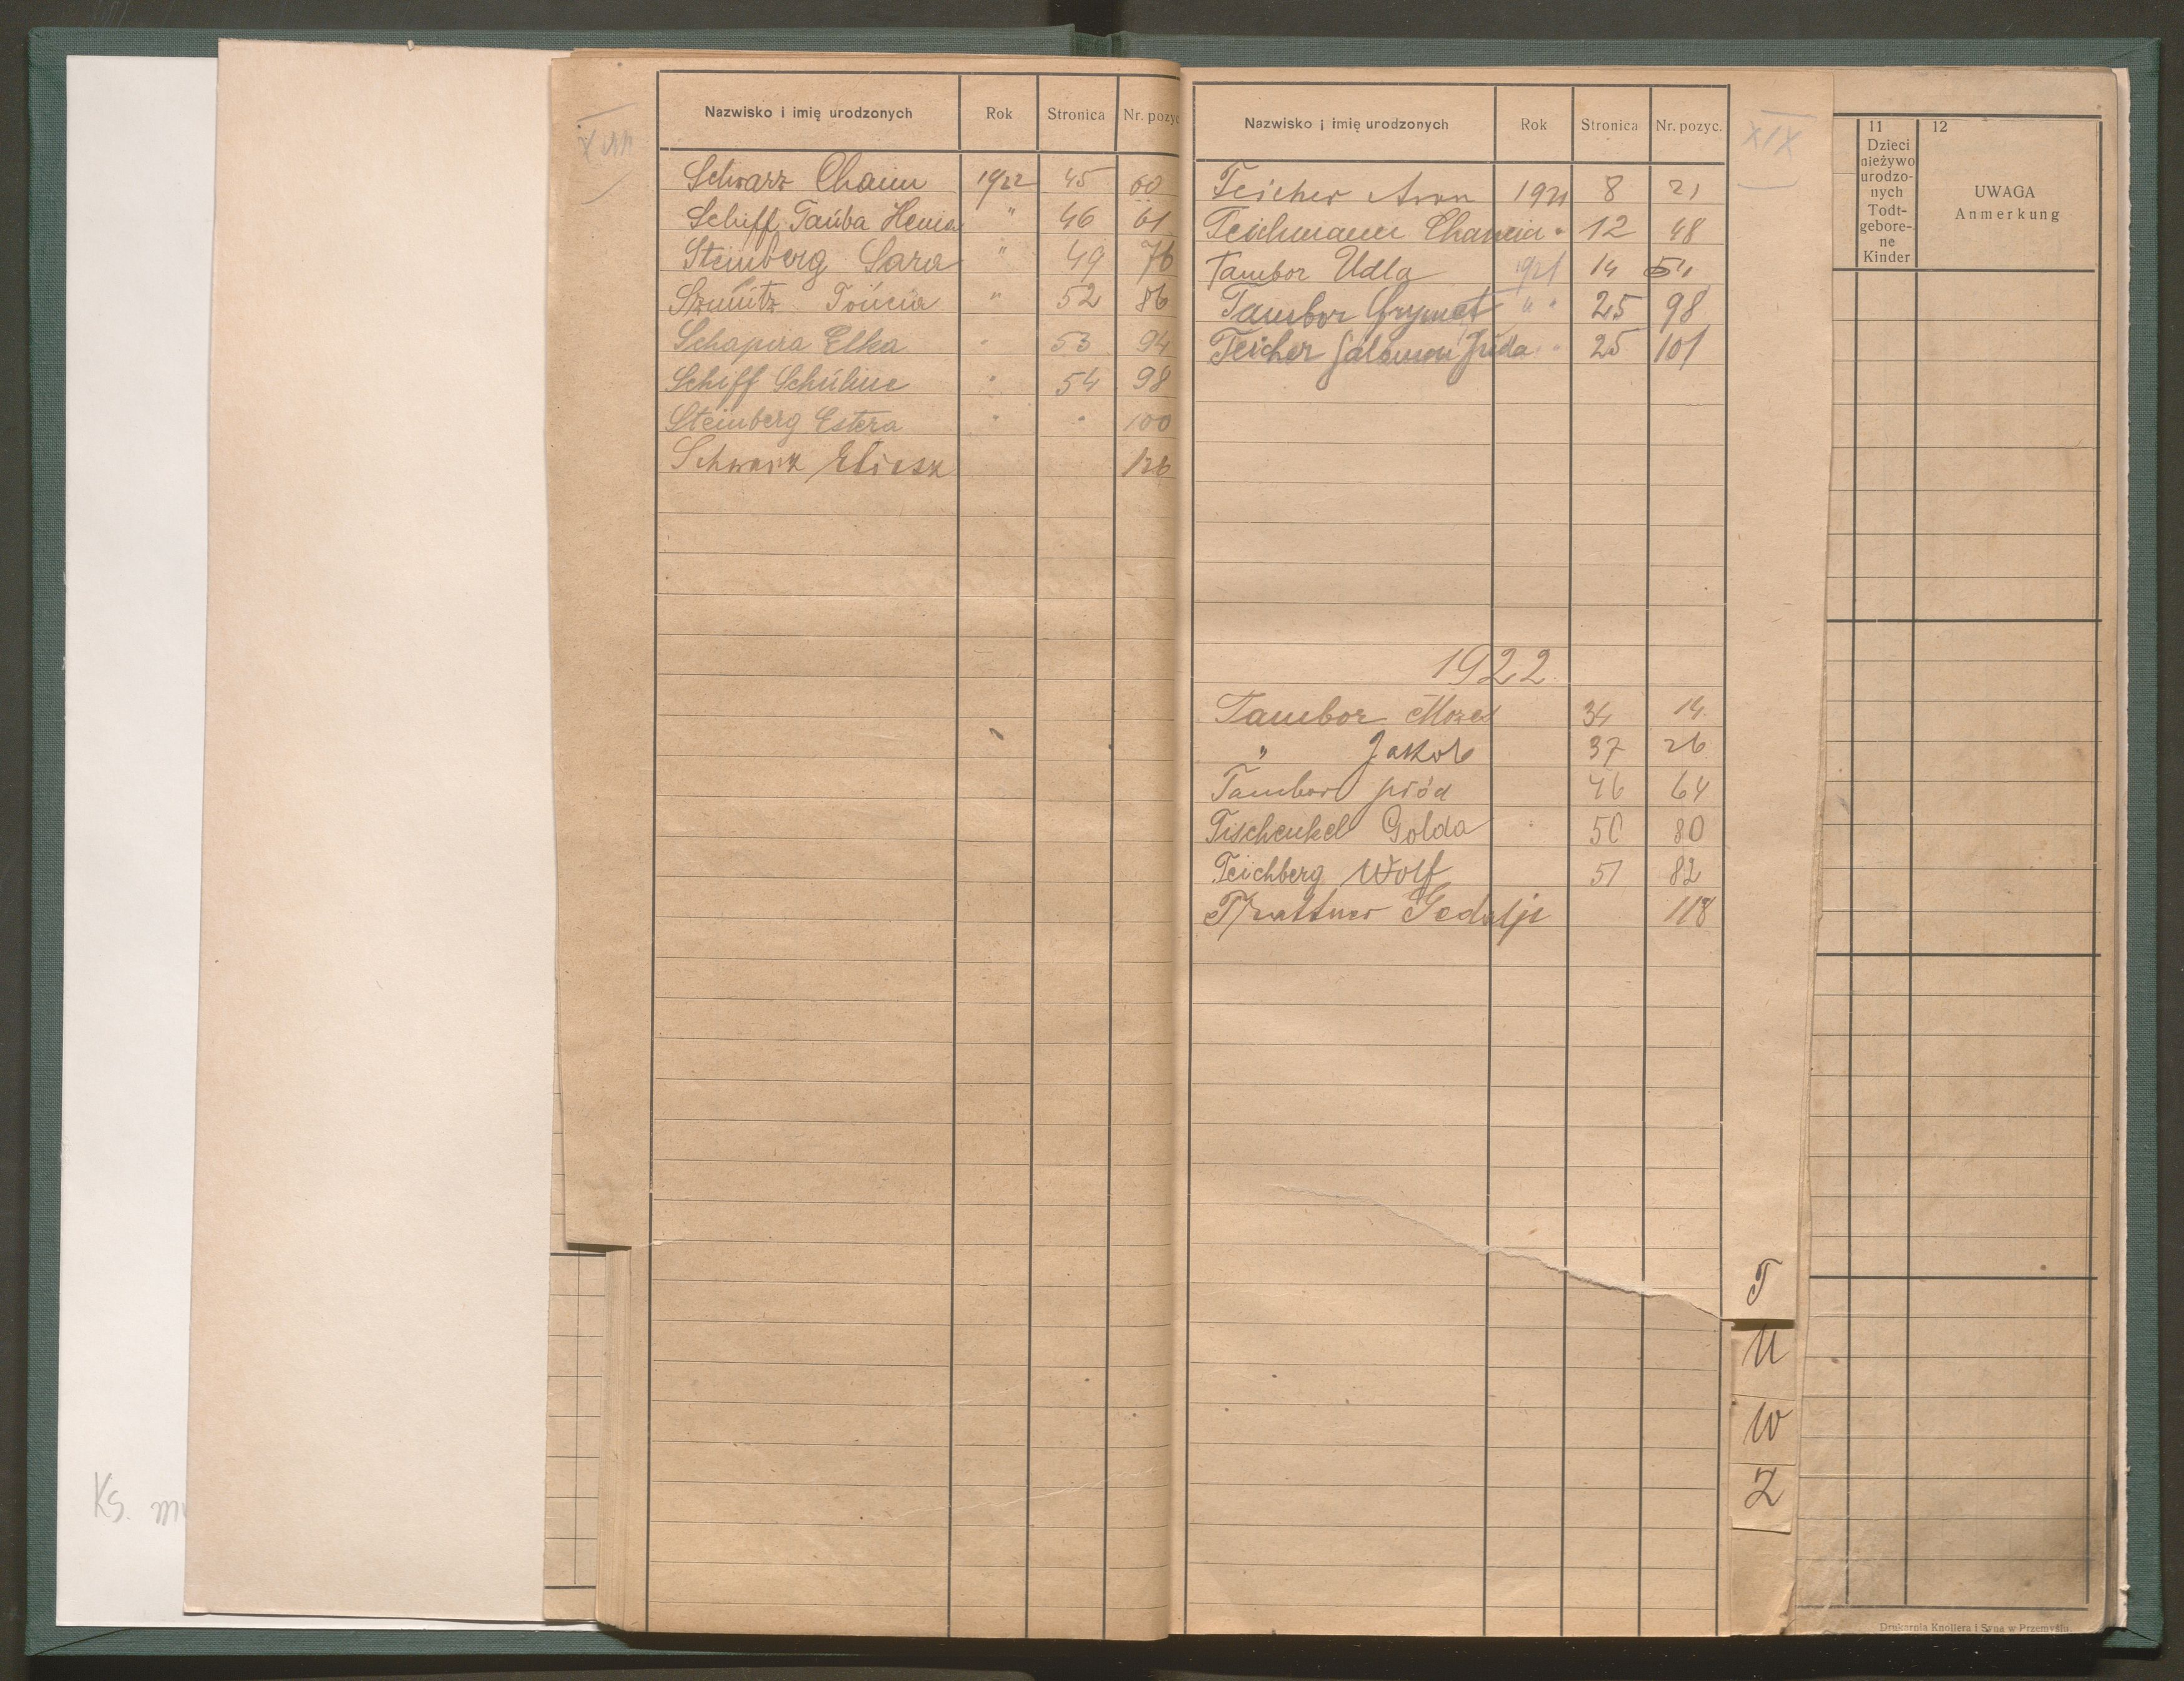 XVIII
Nazwisko i imię urodzonych Rok Stronica Nr. pozyc
Schwarz Chaim 1922 45 60
Schiff Taüba Henia " 46 61
Steinberg Sara " 49 76
52 86
Schapira Elka " 53 94
Schiff " 54 98
Steinberg Estera " " 100
Schwarz Eliasz 126
Nazwisko i imię urodzonych Rok Stronica Nr. pozyc.
XIX
Teicher Aron 1921 8 21
Teichmann Chancia " 12 48
Tambor Udla 1921 14 54
Tambor " " 25 98
Teicher Salomon Juda " 25 101
1922
Tambor Mozes 34 14
" Jakob 37 26
Tambor płód 46 64
Tischenkel Golda 50 80
Teichberg Wolf 51 82
Trattner Gedalje 118
T
U
W
Z
11
Dzieci
nieżywo
urodzo-
nych
Todt-
gebore-
ne
Kinder
12
UWAGA
Anmerkung
Ks. m
Drukarnia Knollera i Syna w Przemyślu